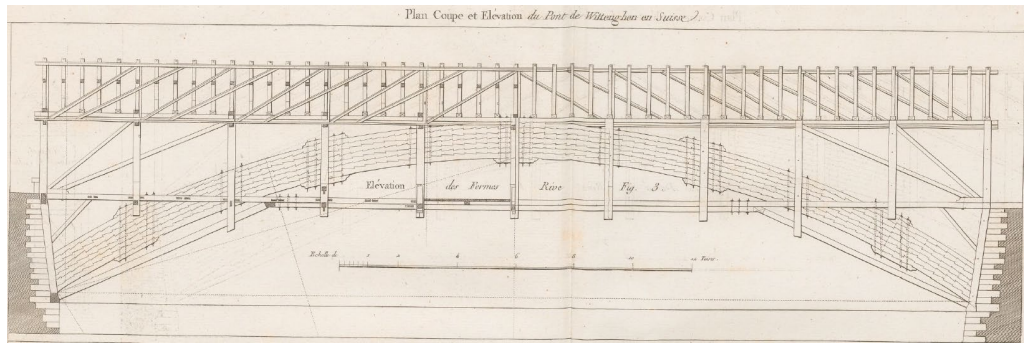 Plan Coupe et Elévation du Pont de Wittenghen en Suisse.
Elévation des Fermes Rive Fig. 3.
Echelle de 1 2 4 6 8 10 12 Toises